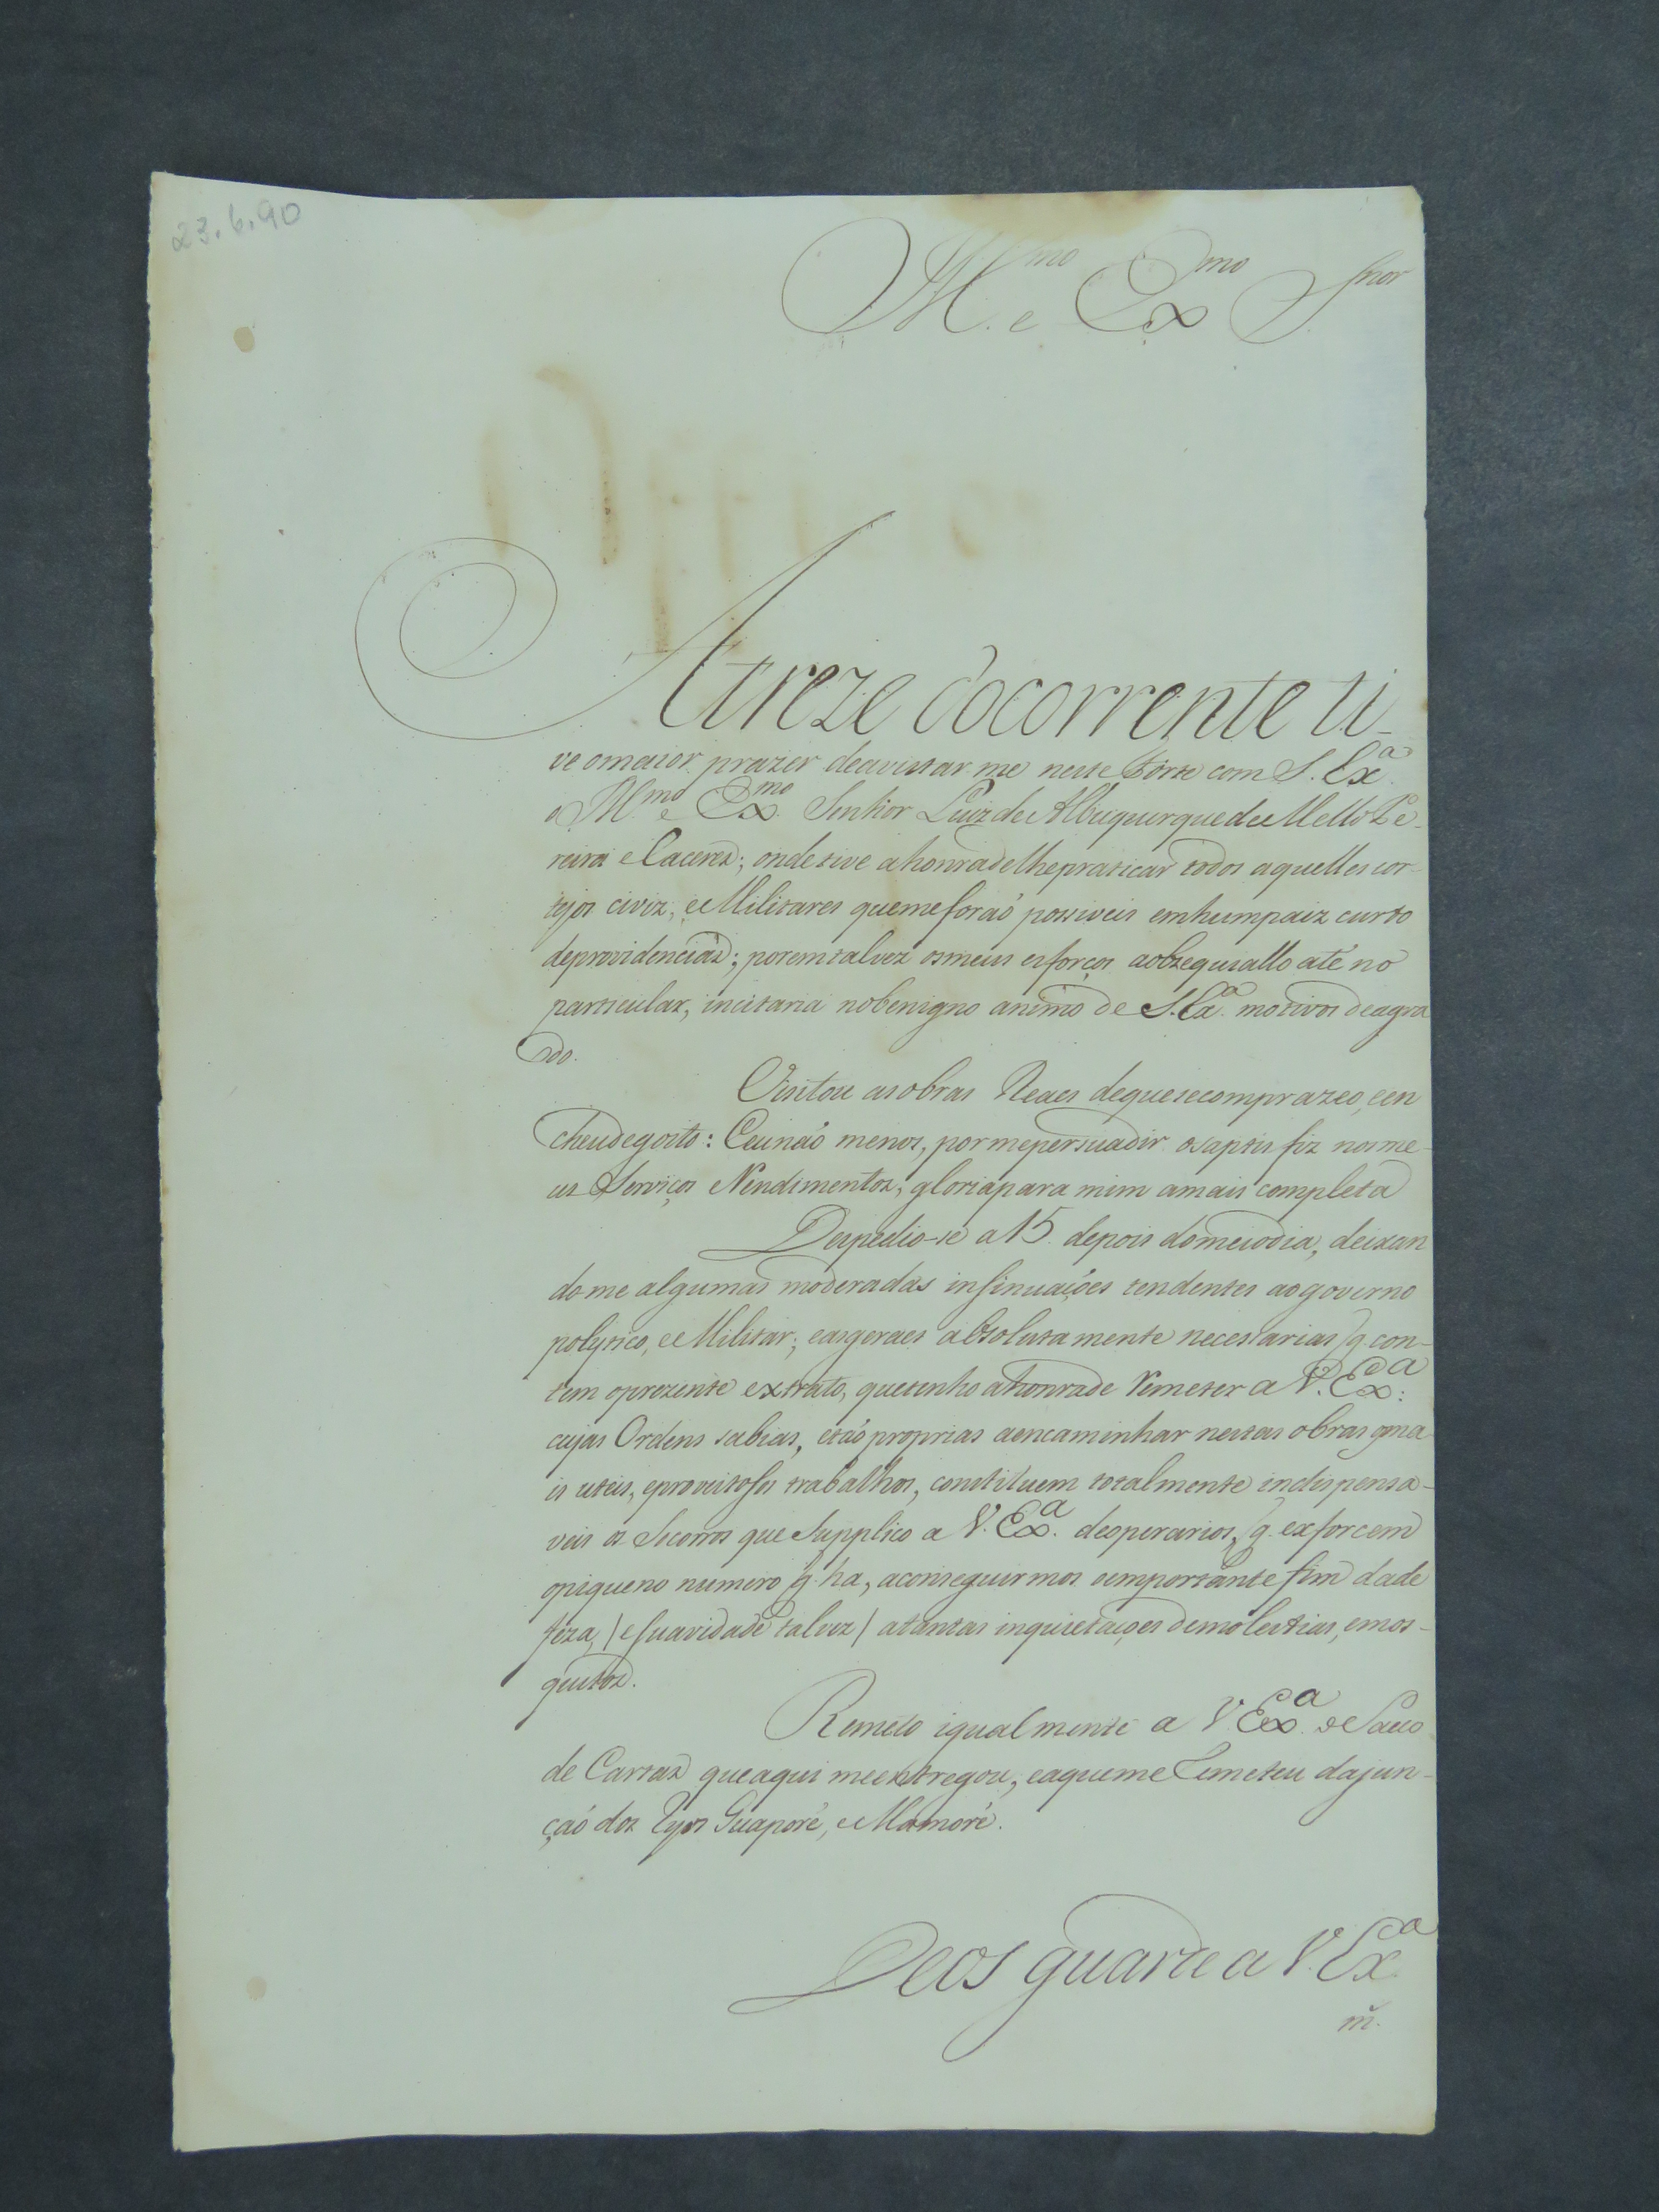 23.6.90
Ill.mo e Ex.mo Snor
A treze docorrente ti-
ve omaior prazer deavistar me neste Forte com S. Ex.a
o Ill.mo e Ex.mo Senhor Luiz de Albuquerque de Mello Pe-
reira e Caceres; onde tive ahonra de lhe praticar todos aquelles cor-
tejos civiz, e Militares que me foraõ possiveis emhumpaiz curto
deprovidencias; porem talvez osmeus esforços aobzequiallo até no
particular, incitaria nobenigno animo de S. Ex.a motivos deagra
do.
Vizitou asobras Reaes dequesecomprazeo, een
cheudegosto: Eeunaõ menos, pormepersuadir osaptis fiz nosme-
us Serviços Rendimentos; gloriapara mim amais completa
Despedio-se a 15 depois domeiodia, deixan
dome algumas moderadas insinuaições tendentes aogoverno
polytico, e Militar; easgeraes absolutamente necessarias q. con-
tem oprezente extrato, quetenho ahonrade Remeter a V. Ex.a:
cujas Ordens sabias, etaõ proprias aencaminhar nestas obras oma
is uteis, eproveitosos trabalhos, constituem totalmente indispensa-
veis os Socorros que Supplico a V. Ex.a deoperarios, q. exforcem
opiqueno numero q. ha, aconseguirmos oimportante fim dade
feza, / e suavidade talvez / atantas inquietações demolestias, emos-
quitos.
Remeto igualmente a V. Ex.a o Saco
de Cartas queaqui meentregou, eaqueme Remeteu dajun-
çaõ dos Ryos Guaporé, e Mamoré.
Deos guarde a V. Ex.a
m.